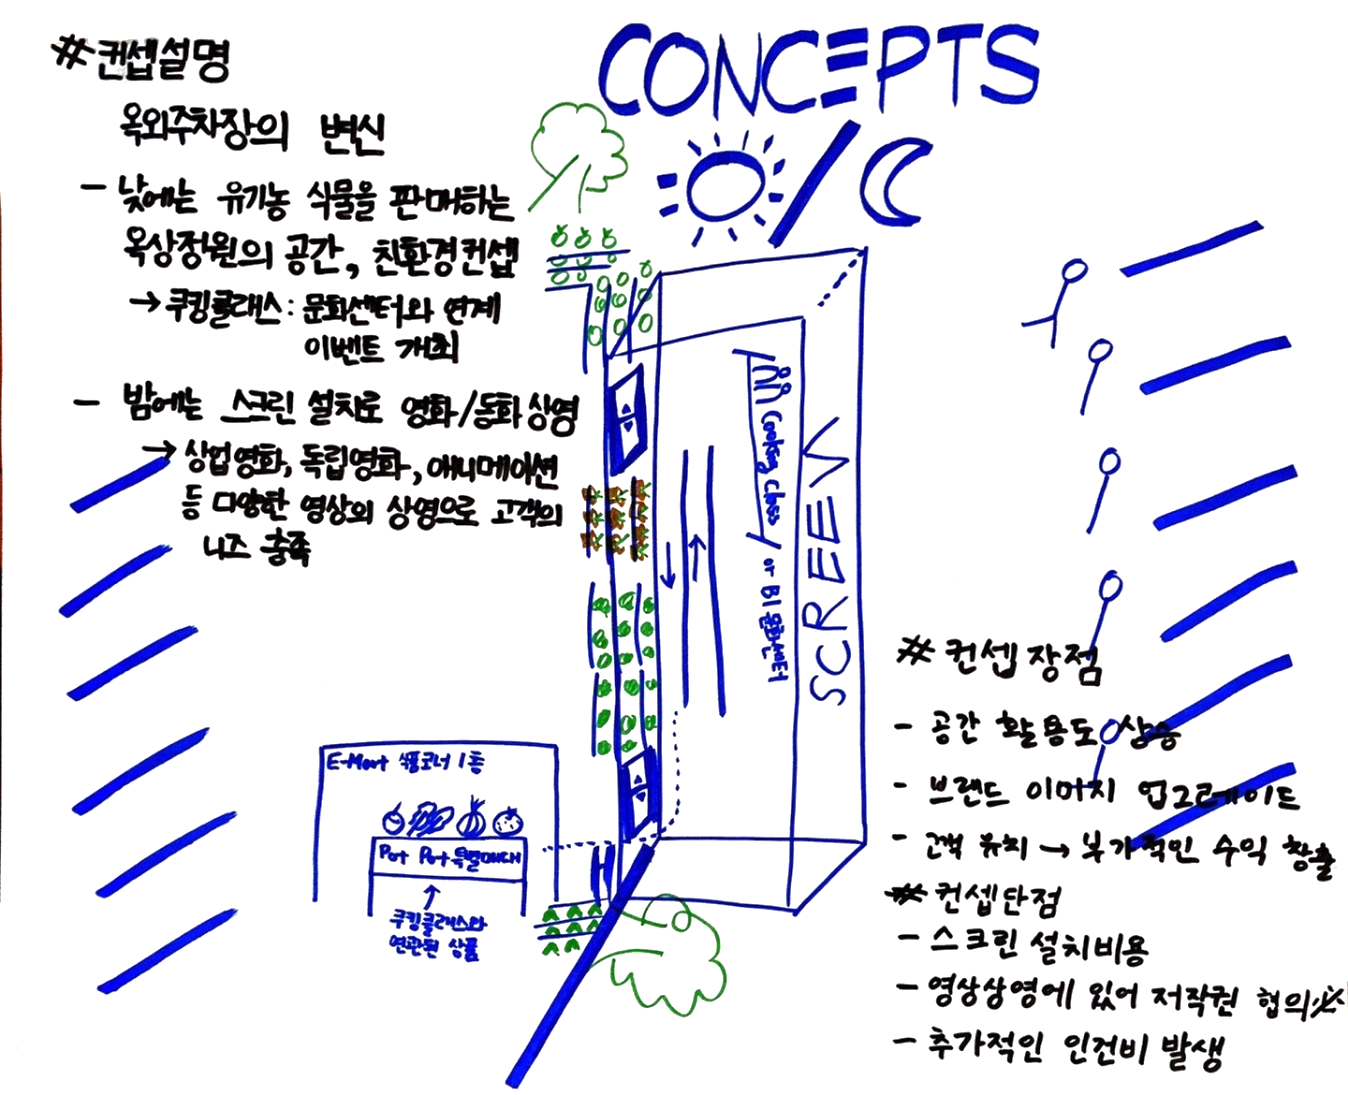 CONCEPTS
# 컨셉설명
옥외주차장의 변신
- 낮에는 유기농 식물을 판매하는
옥상정원의 공간, 친환경컨셉
→ 쿠킹클래스 : 문화센터와 연계
이벤트 개최
- 밤에는 스크린 설치로 영화/동화상영
→ 상업영화, 독립영화, 애니메이션
등 다양한 영상의 상영으로 고객의
니즈 충족
Cooking class / or B1 문화센터
SCREEN
E-Mart 식품코너 1층
Pot Pot 특별매대
쿠킹클래스와
연관된 상품
# 컨셉장점
- 공간 활용도 상승
- 브랜드 이미지 업그레이드
- 고객 유치 → 부가적인 수익 창출
# 컨셉단점
- 스크린 설치비용
- 영상상영에 있어 저작권 협의
- 추가적인 인건비 발생